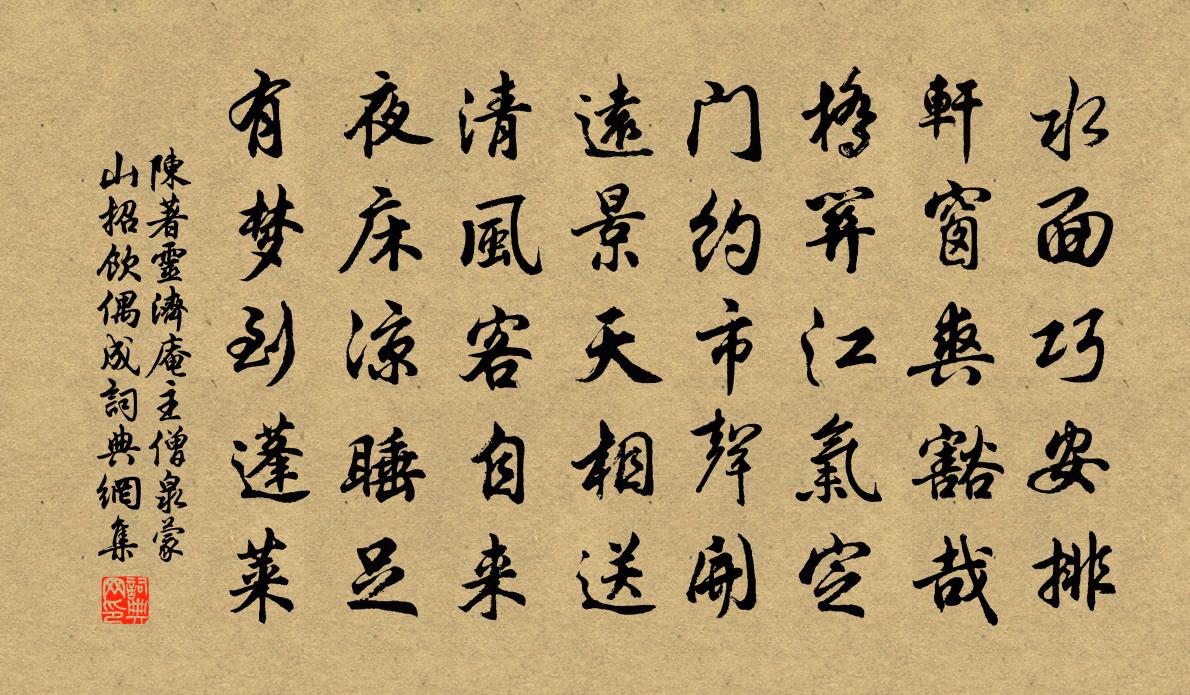 水面巧安排
軒窗爽豁哉
橋江氣定
门约市聲開
遠景天相送
清風客自来
夜床涼睡足
有梦到蓬莱
陳著靈濟庵主僧泉蒙
山招飲偶成詞典網集
詞典
网印